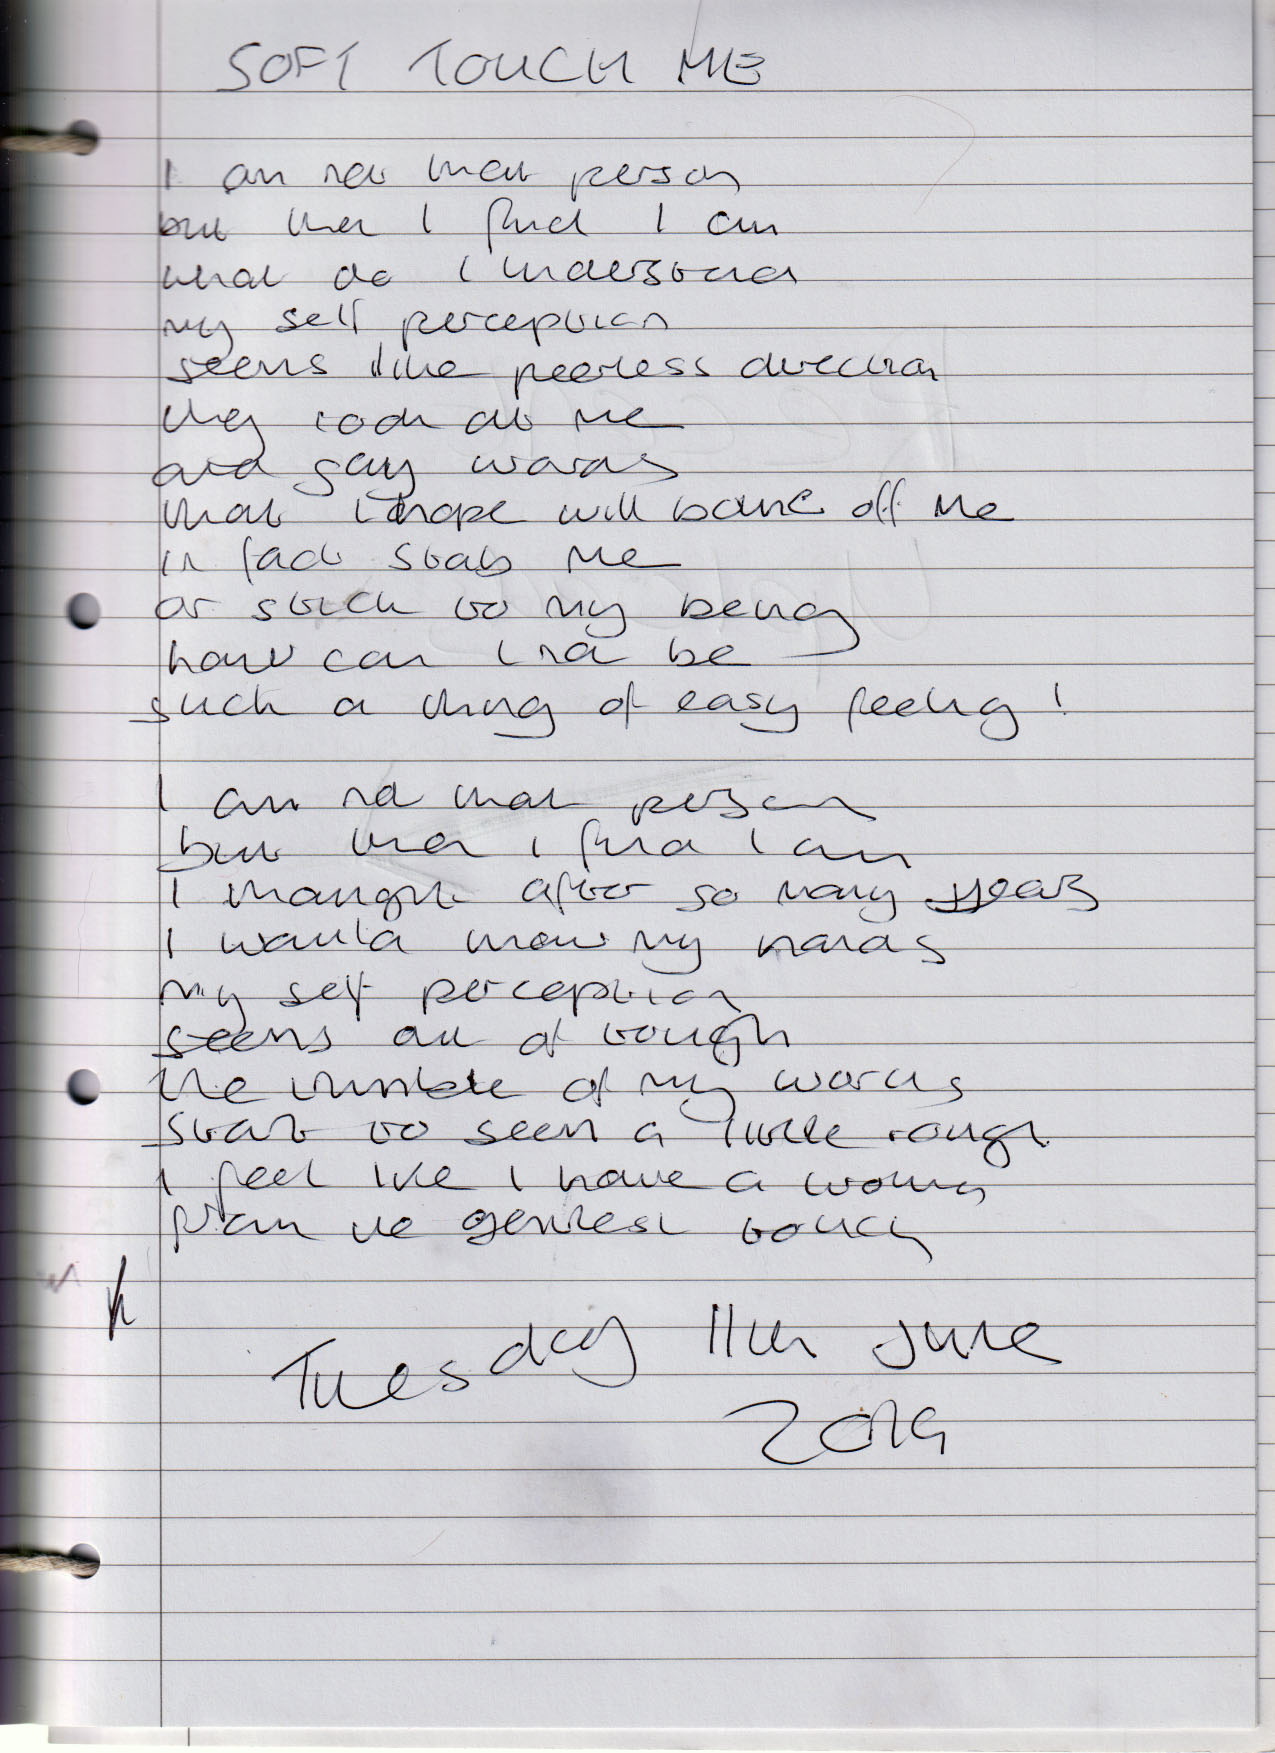 SOFT TOUCH ME
I am not that person
but then I find I am
what do I understand
my self perception
seems like peerless direction
they look at me
and say words
that I hope will bounce off me
in fact stab me
or stick to my being
how can I not be
such a thing of easy feeling!
I am not that person
but then I find I am
I thought after so many years
I would know my hands
my self perception
seems all of tough
the thimble of my words
start to seem a little rough
I feel like I have a wound
from the gentlest touch
Tuesday 11th June
2019